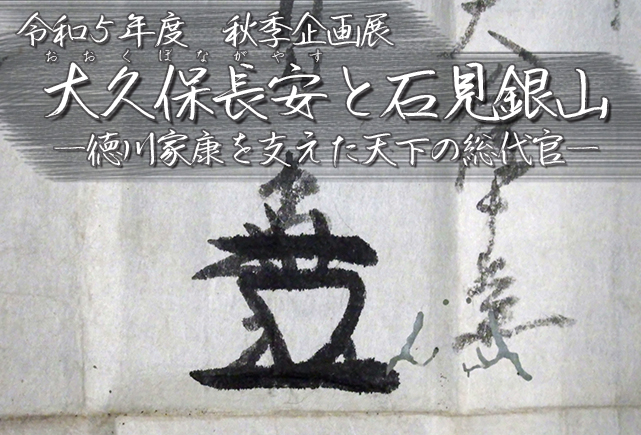 令和5年度　秋季企画展
おおくぼながやす
大久保長安と石見銀山
―徳川家康を支えた天下の総代官―